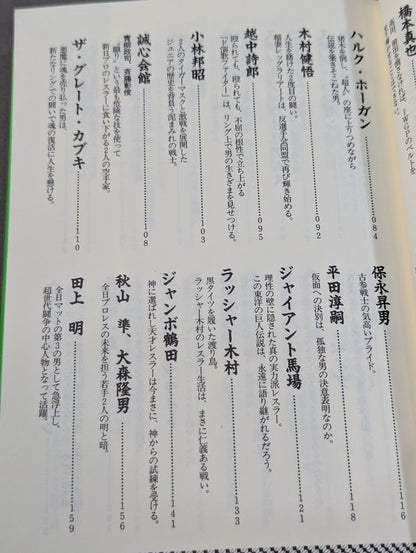 橋真也
ハルク・ホーガン……084
猪木を倒し、“超人”の座に上りつめながら
伝説を築きそこねた男。
木村健悟……092
人生を賭けた2度目の闘い。
稲妻レッグラリアートは、反選手会同盟で再び輝き始める。
越中詩郎……095
殴られても、殴られても、不屈の根性で立ち上がる
「ド演歌ファイター」は、リング上で男の生きざまを見せつける。
小林邦昭……103
2人のタイガーマスクと激戦を展開した
ジュニアの歴史を背負う泥まみれの戦士。
誠心会館……108
青柳政司、斉藤彰俊
“蹴り”という最も危険な技を使って
新日プロのレスラーに食い下がる2人の空手家。
ザ・グレート・カブキ……110
悪魔に魂を売り払った男は、
新たなリングでの闘いで魂の復活に人生を懸ける。
116
保永昇男
古参戦士の気高いプライド。
平田淳嗣……118
仮面への決別は、孤独な男の決意表明なのか。
ジャイアント馬場……121
理性の壁に隠された真の実力派レスラー。
この東洋の巨人伝説は、永遠に語り継がれるだろう。
ラッシャー木村……133
黒タイツを穿いた渡り鳥。
ラッシャー木村のレスラー生活は、まさに仁義ある戦い。
ジャンボ鶴田……141
神に選ばれし天才レスラーは今まさに、神からの試練を受ける。
秋山 準、大森隆男……156
全日プロレスの未来を担う若手2人の明と暗。
田上 明……159
全日マットの第3の男として急浮上し、
超世代闘争の中心人物となって活躍。